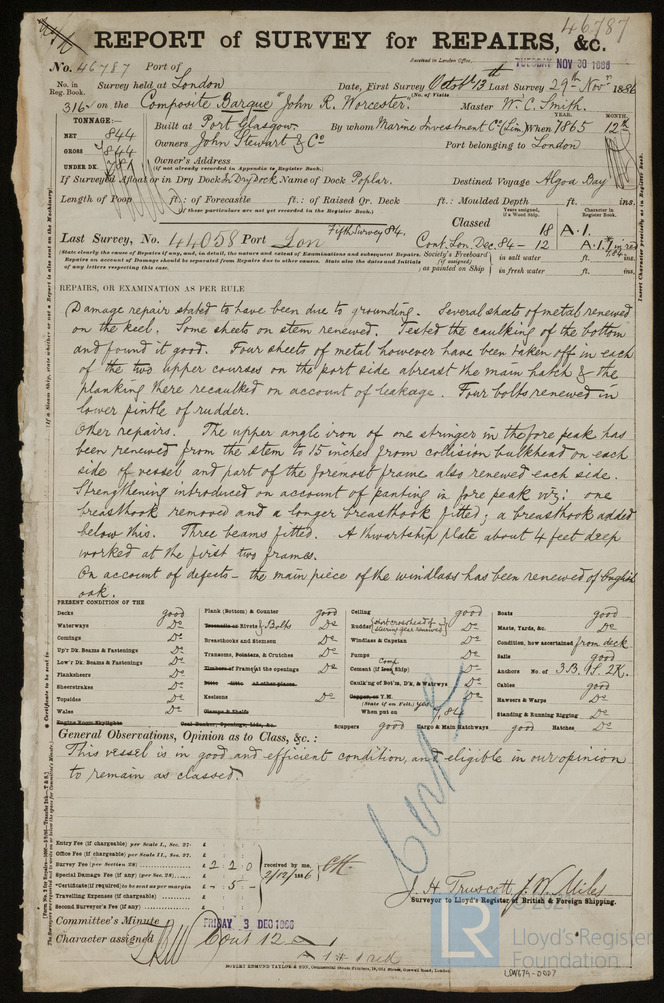 46787
REPORT of SURVEY for REPAIRS, &c.
No. 46787 Port of
Received in London Office, TUESDAY NOV 30 1886
No. in Reg. Book. Survey held at London Date, First Survey Octobr 13th Last Survey 29th Novr 1886
(No. of Visits
316 on the Composite Barque "John R. Worcester". Master W. C. Smith.
TONNAGE:—
NET 844
GROSS 844
UNDER DK. 781
YEAR. MONTH.
Built at Port Glasgow By whom Marine Investment Co (Lim) When 1865 12th
Owners John Stewart & Co Port belonging to London
Owner's Address
(if not already recorded in Appendix to Register Book.)
If Surveyed Afloat or in Dry Dock In Dry Dock Name of Dock Poplar. Destined Voyage Algoa Bay
Length of Poop ft.: of Forecastle ft.: of Raised Qr. Deck ft.: Moulded Depth ft. ins.
(if these particulars are not yet recorded in the Register Book.)
Years assigned, if a Wood Ship. Character in Register Book.
Fifth Survey 84.
Classed 18 A.1.
Last Survey, No. 44058 Port Lon Cont. Lon. Dec. 84 – 12 A.1.
(State clearly the cause of Repairs if any, and, in detail, the nature and extent of Examinations and subsequent Repairs. Repairs on account of Damage should be separated from Repairs due to other causes. State also the dates and Initials of any letters respecting this case.
Society's Freeboard (if assigned) as painted on Ship
in salt water ft. ins.
in fresh water ft. ins.
REPAIRS, OR EXAMINATION AS PER RULE
Damage repair stated to have been due to grounding. Several sheets of metal renewed
on the keel. Some sheets on stem renewed. Tested the caulking of the bottom
and found it good. Four sheets of metal however have been taken off in each
of the two upper courses on the port side abreast the main hatch & the
planking there recaulked on account of leakage. Four bolts renewed in
lower pintle of rudder.
Other repairs. The upper angle iron of one stringer in the fore peak has
been renewed from the stem to 15 inches from collision bulkhead on each
side of vessel and part of the foremost frame also renewed each side.
Strengthening introduced on account of panting in fore peak viz: one
breasthook removed and a longer breasthook fitted; a breasthook added
below this. Three beams fitted. A thwartship plate about 4 feet deep
worked at the first two frames.
On account of defects – the main piece of the windlass has been renewed of English
oak.
PRESENT CONDITION OF THE
Decks good
Waterways Do
Comings Do
Up'r Dk. Beams & Fastenings Do
Low'r Dk. Beams & Fastenings Do
Topsides Do
Sheerstrakes Do
Wales Do
Engine Room Skylights
Plank (Bottom) & Counter good
Treenails or Rivets & Bolts Do
Breasthooks and Stemson Do
Transoms, Pointers, & Crutches Do
Timbers of Frame at the openings Do
Ditto Ditto At other places.
Keelsons Do
Clamps & Shelfs
Coal Bunker, Openings, Lids, &c.
Ceiling good
Rudder (joint crosshead of steering gear renewed) Do
Windlass & Capstan Do
Pumps Do
Cement (if Iron Ship) Comp. Do
Caulk'g of Bot'm, D'k, & Watrwys Do
Copper, or Y.M. Do
(State if on Felt.) Yes
When put on 7.84
Scuppers good Cargo & Main Hatchways good Hatches Do
Boats good
Masts, Yards, &c. Do
Condition, how ascertained from deck
Sails good
Anchors No. of 3.B.1S. 2K.
Cables good
Hawsers & Warps Do
Standing & Running Rigging Do
General Observations, Opinion as to Class, &c.:
This vessel is in good and efficient condition, and eligible in our opinion
to remain as classed.
Entry Fee (if chargeable) per Scale I., Sec. 27: £
Office Fee (if chargeable) per Scale II., Sec. 27. £
Survey Fee (per Section 28) £ 2 2 0
Special Damage Fee (if any) (per Sec. 28) £
*Certificate (if required) to be sent as per margin £ - 5 -
Travelling Expenses (if chargeable) £
Second Surveyor's Fee (if any) £
received by me,
2/12/1886
J. H. Truscott, J. W. Miles
Surveyor to Lloyd's Register of British & Foreign Shipping.
Committee's Minute FRIDAY 3 DEC 1886
Character assigned Cont 12 A 1
ROBERT EDMUND TAYLOR & SON, Commercial Steam Printers, 19, Old Street, Goswell Road, London
© 2021
LR
Lloyd's Register
Foundation
LON679-0507